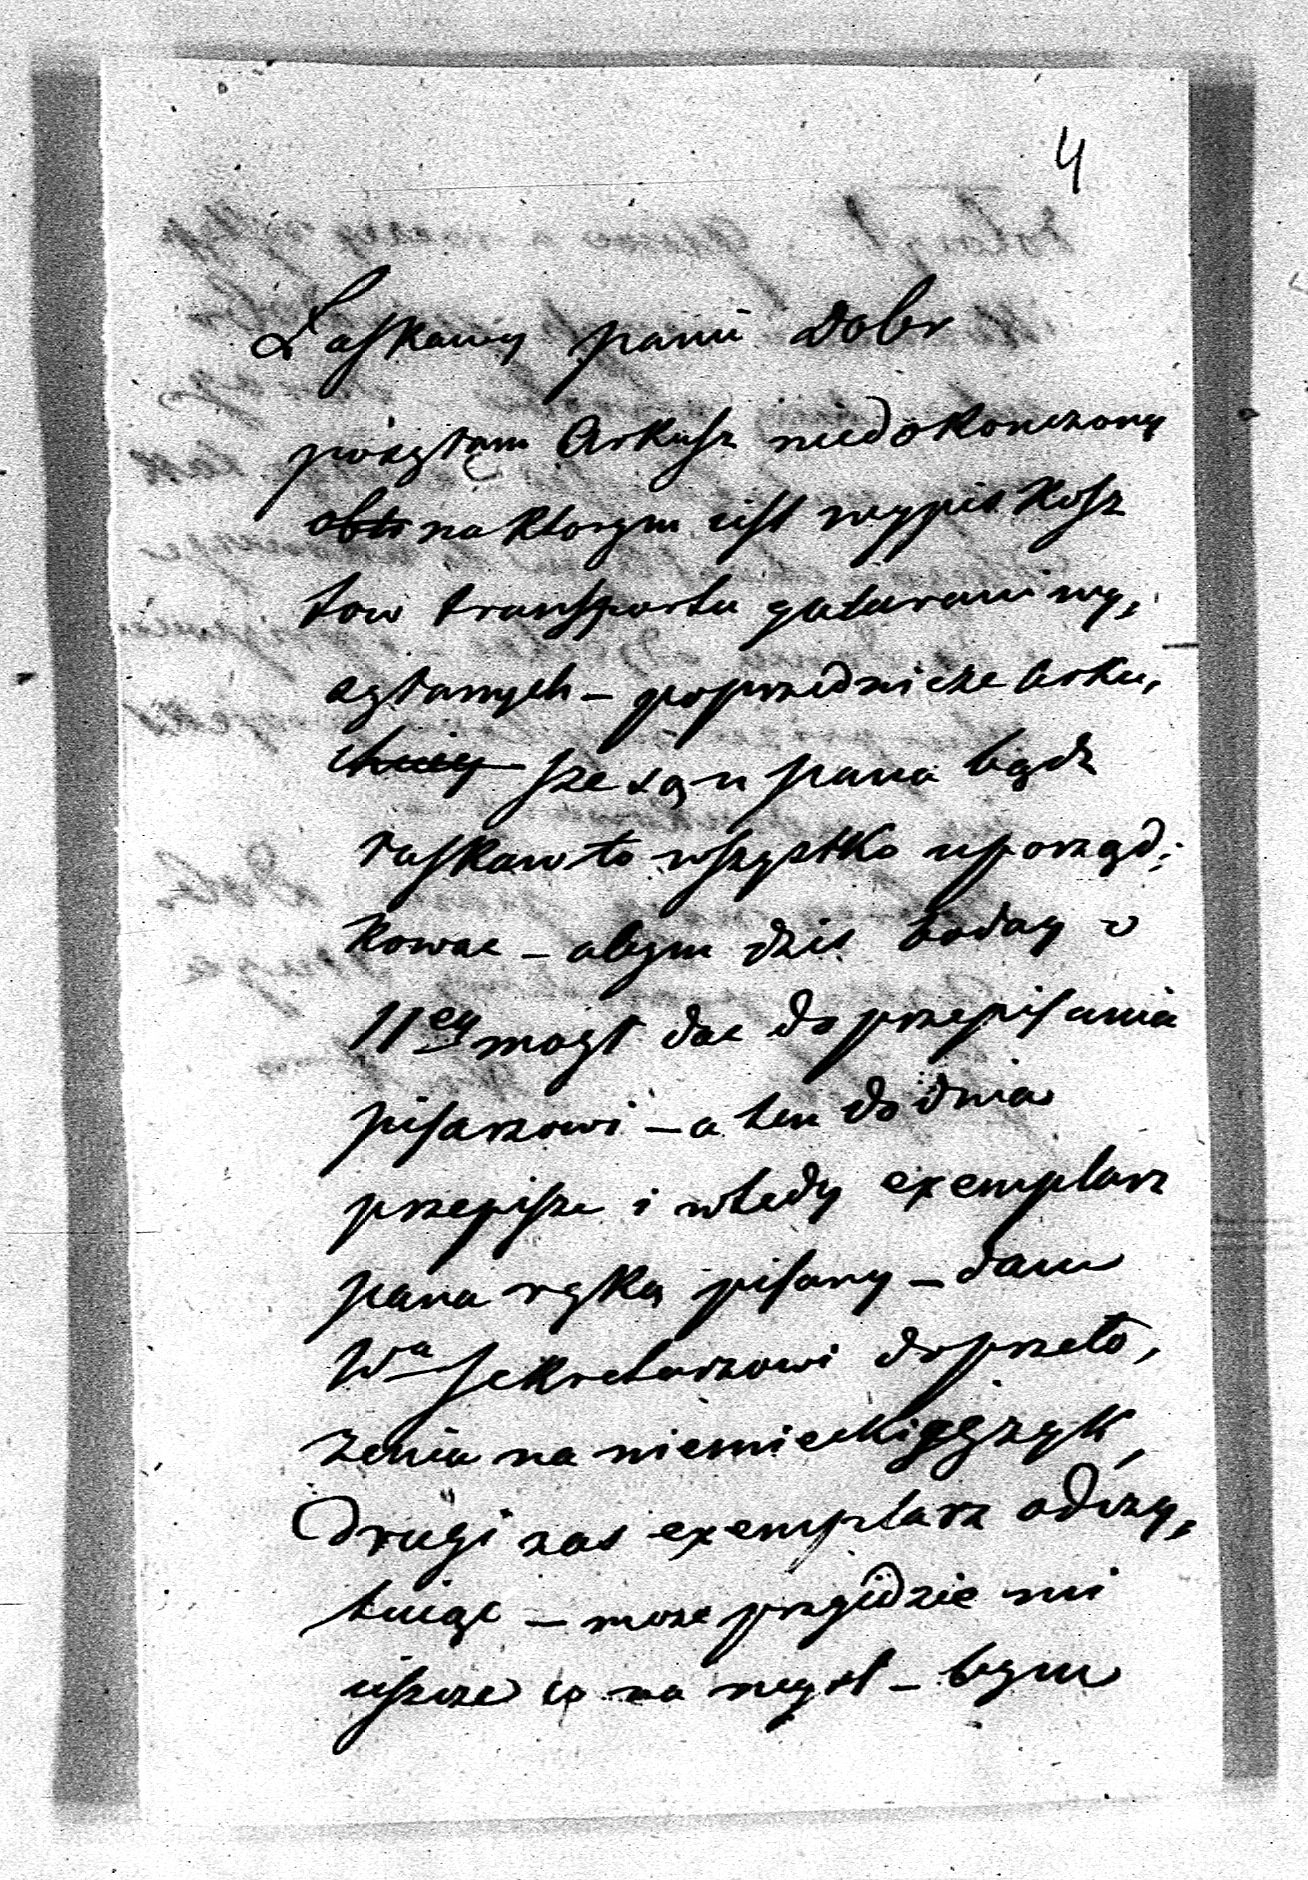 4
Łaskawy panie Dobr
posyłam Arkusz niedokonczony
na ktorym jest wypis kosz
tow transportu galarami wy,
syłanych – poprzednicze Arku,
sze są u pana bądz
łaskaw to wszystko uporząd:
kowac – abym dzis boday o
11ey mogł dac do przepisania
pisarzowi – a ten do dnia
przepisze i wtedy exemplarz
pana ręką pisany – dam
Wa sekretarzowi do przeło,
zenia na niemiecki język
Drugi zas exemplarz odczy,
tując – moze przyidzie mi
jeszcze co na mysl – bym